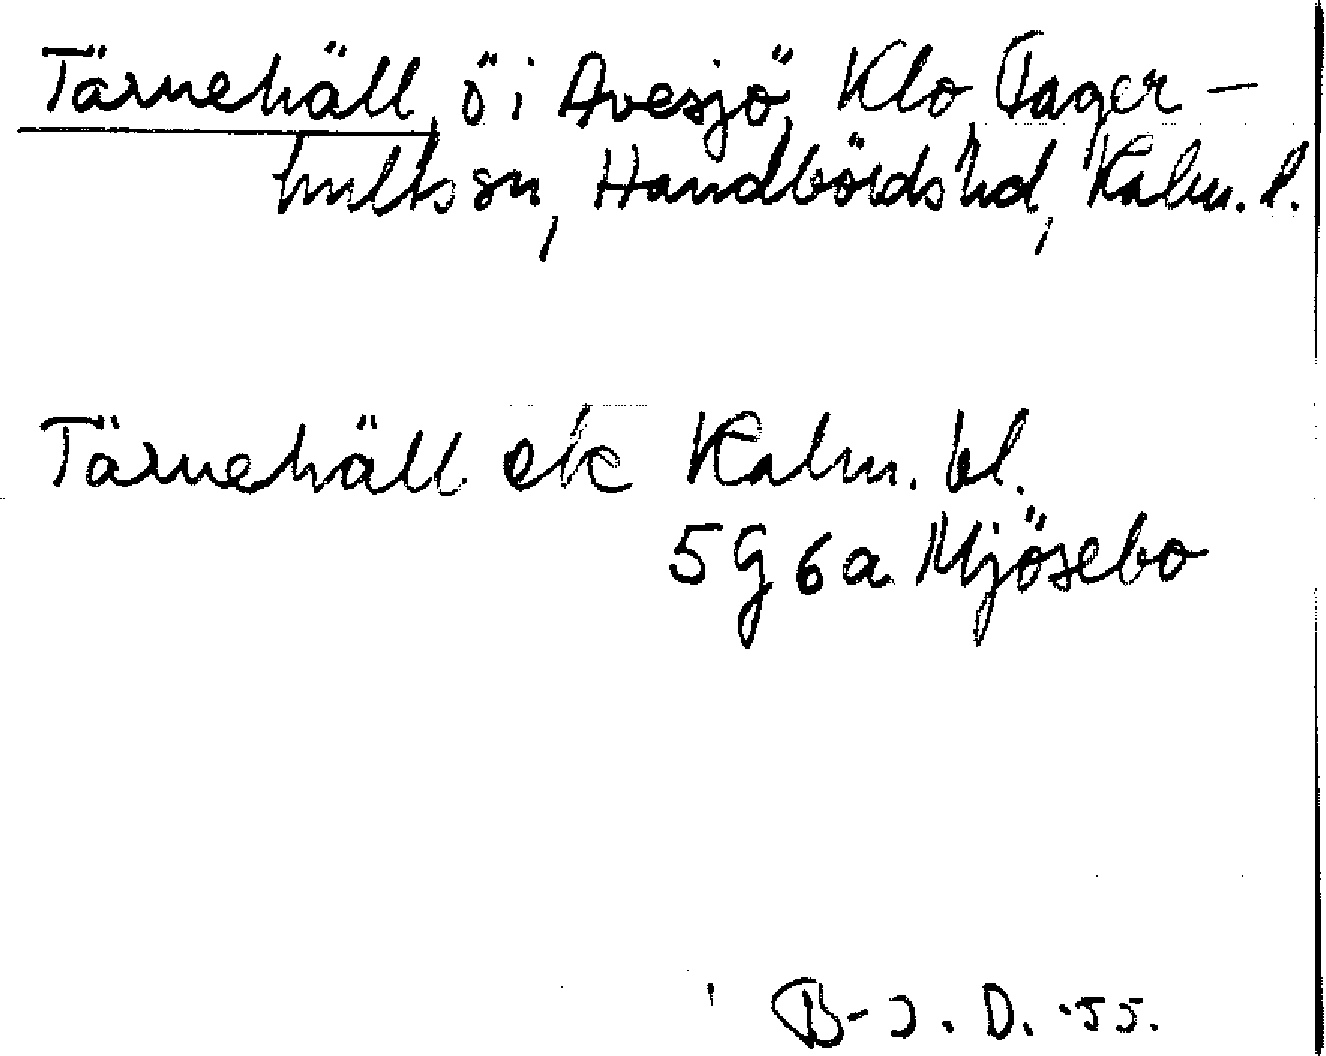 Tärnehäll, ö i Avesjö, Klo, Fager-
hults sn, Handbörds hd, Kalm. l.
Tärnehäll ek Kalm. bl.
5G6a Mjösebo
B-J. D. -55.